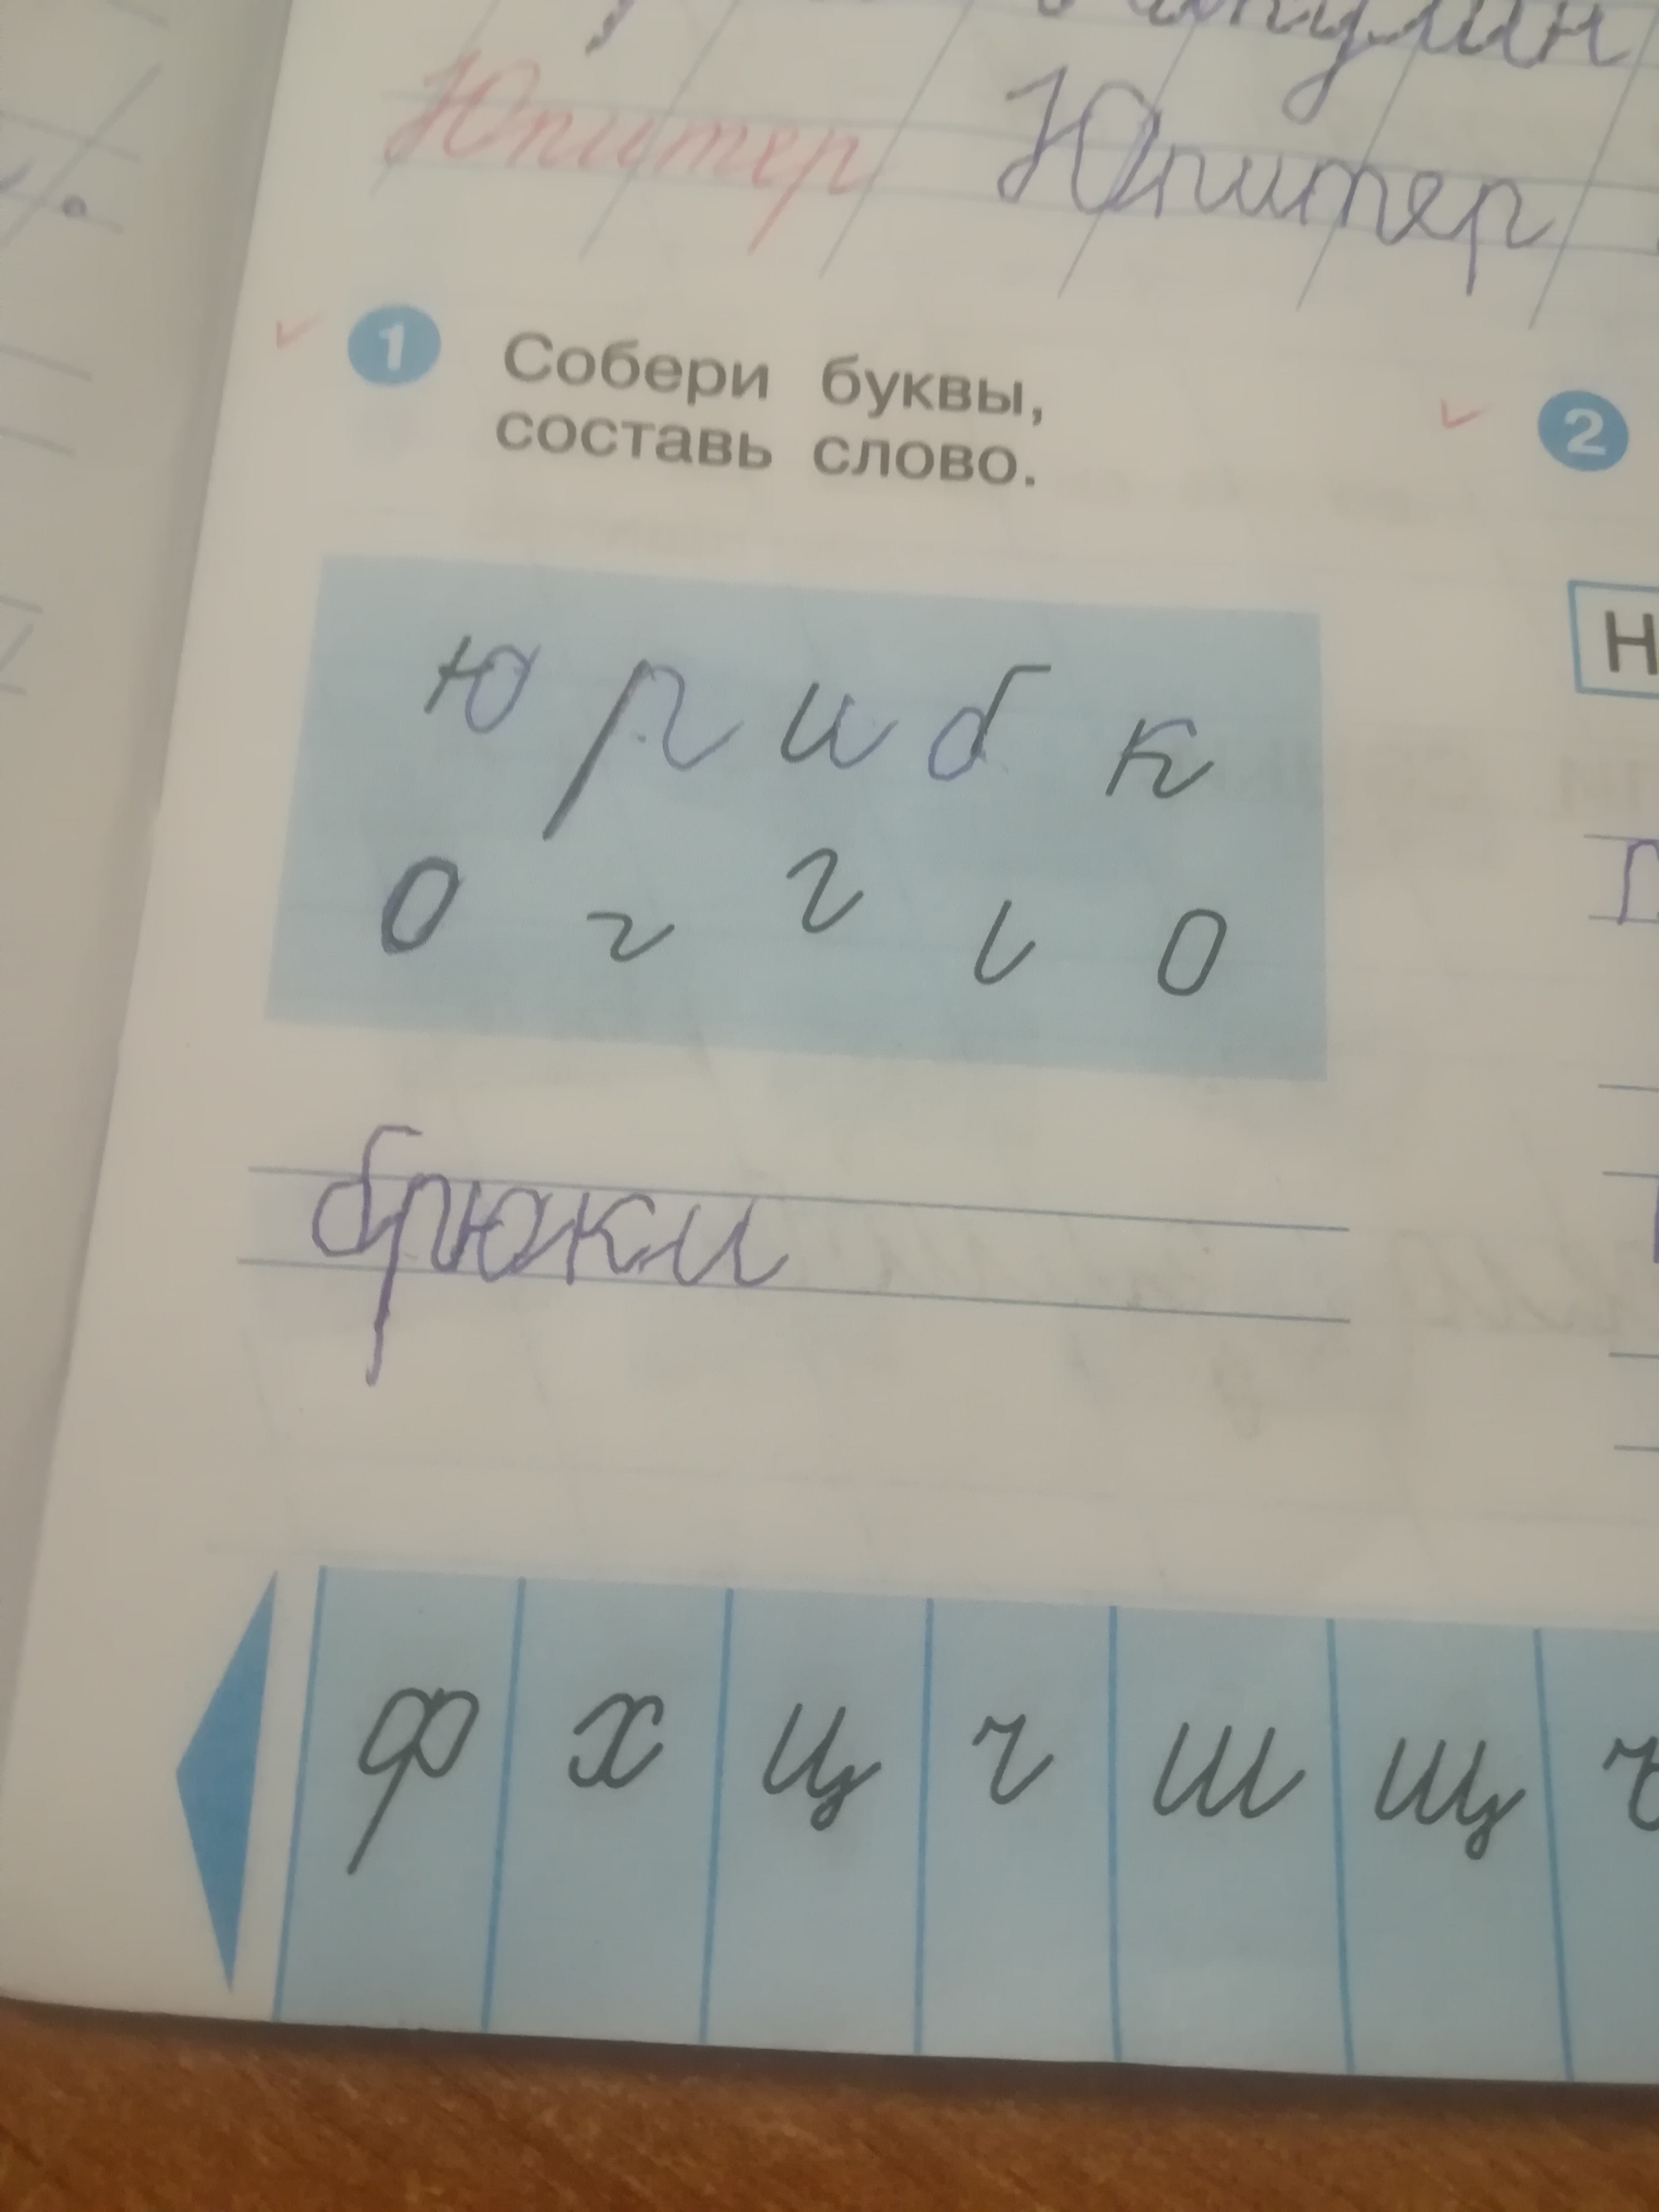 Юпитер Юпитер
1 Собери буквы,
составь слово.
2
ю р и б к
Н
брюки
ф х ц ч ш щ